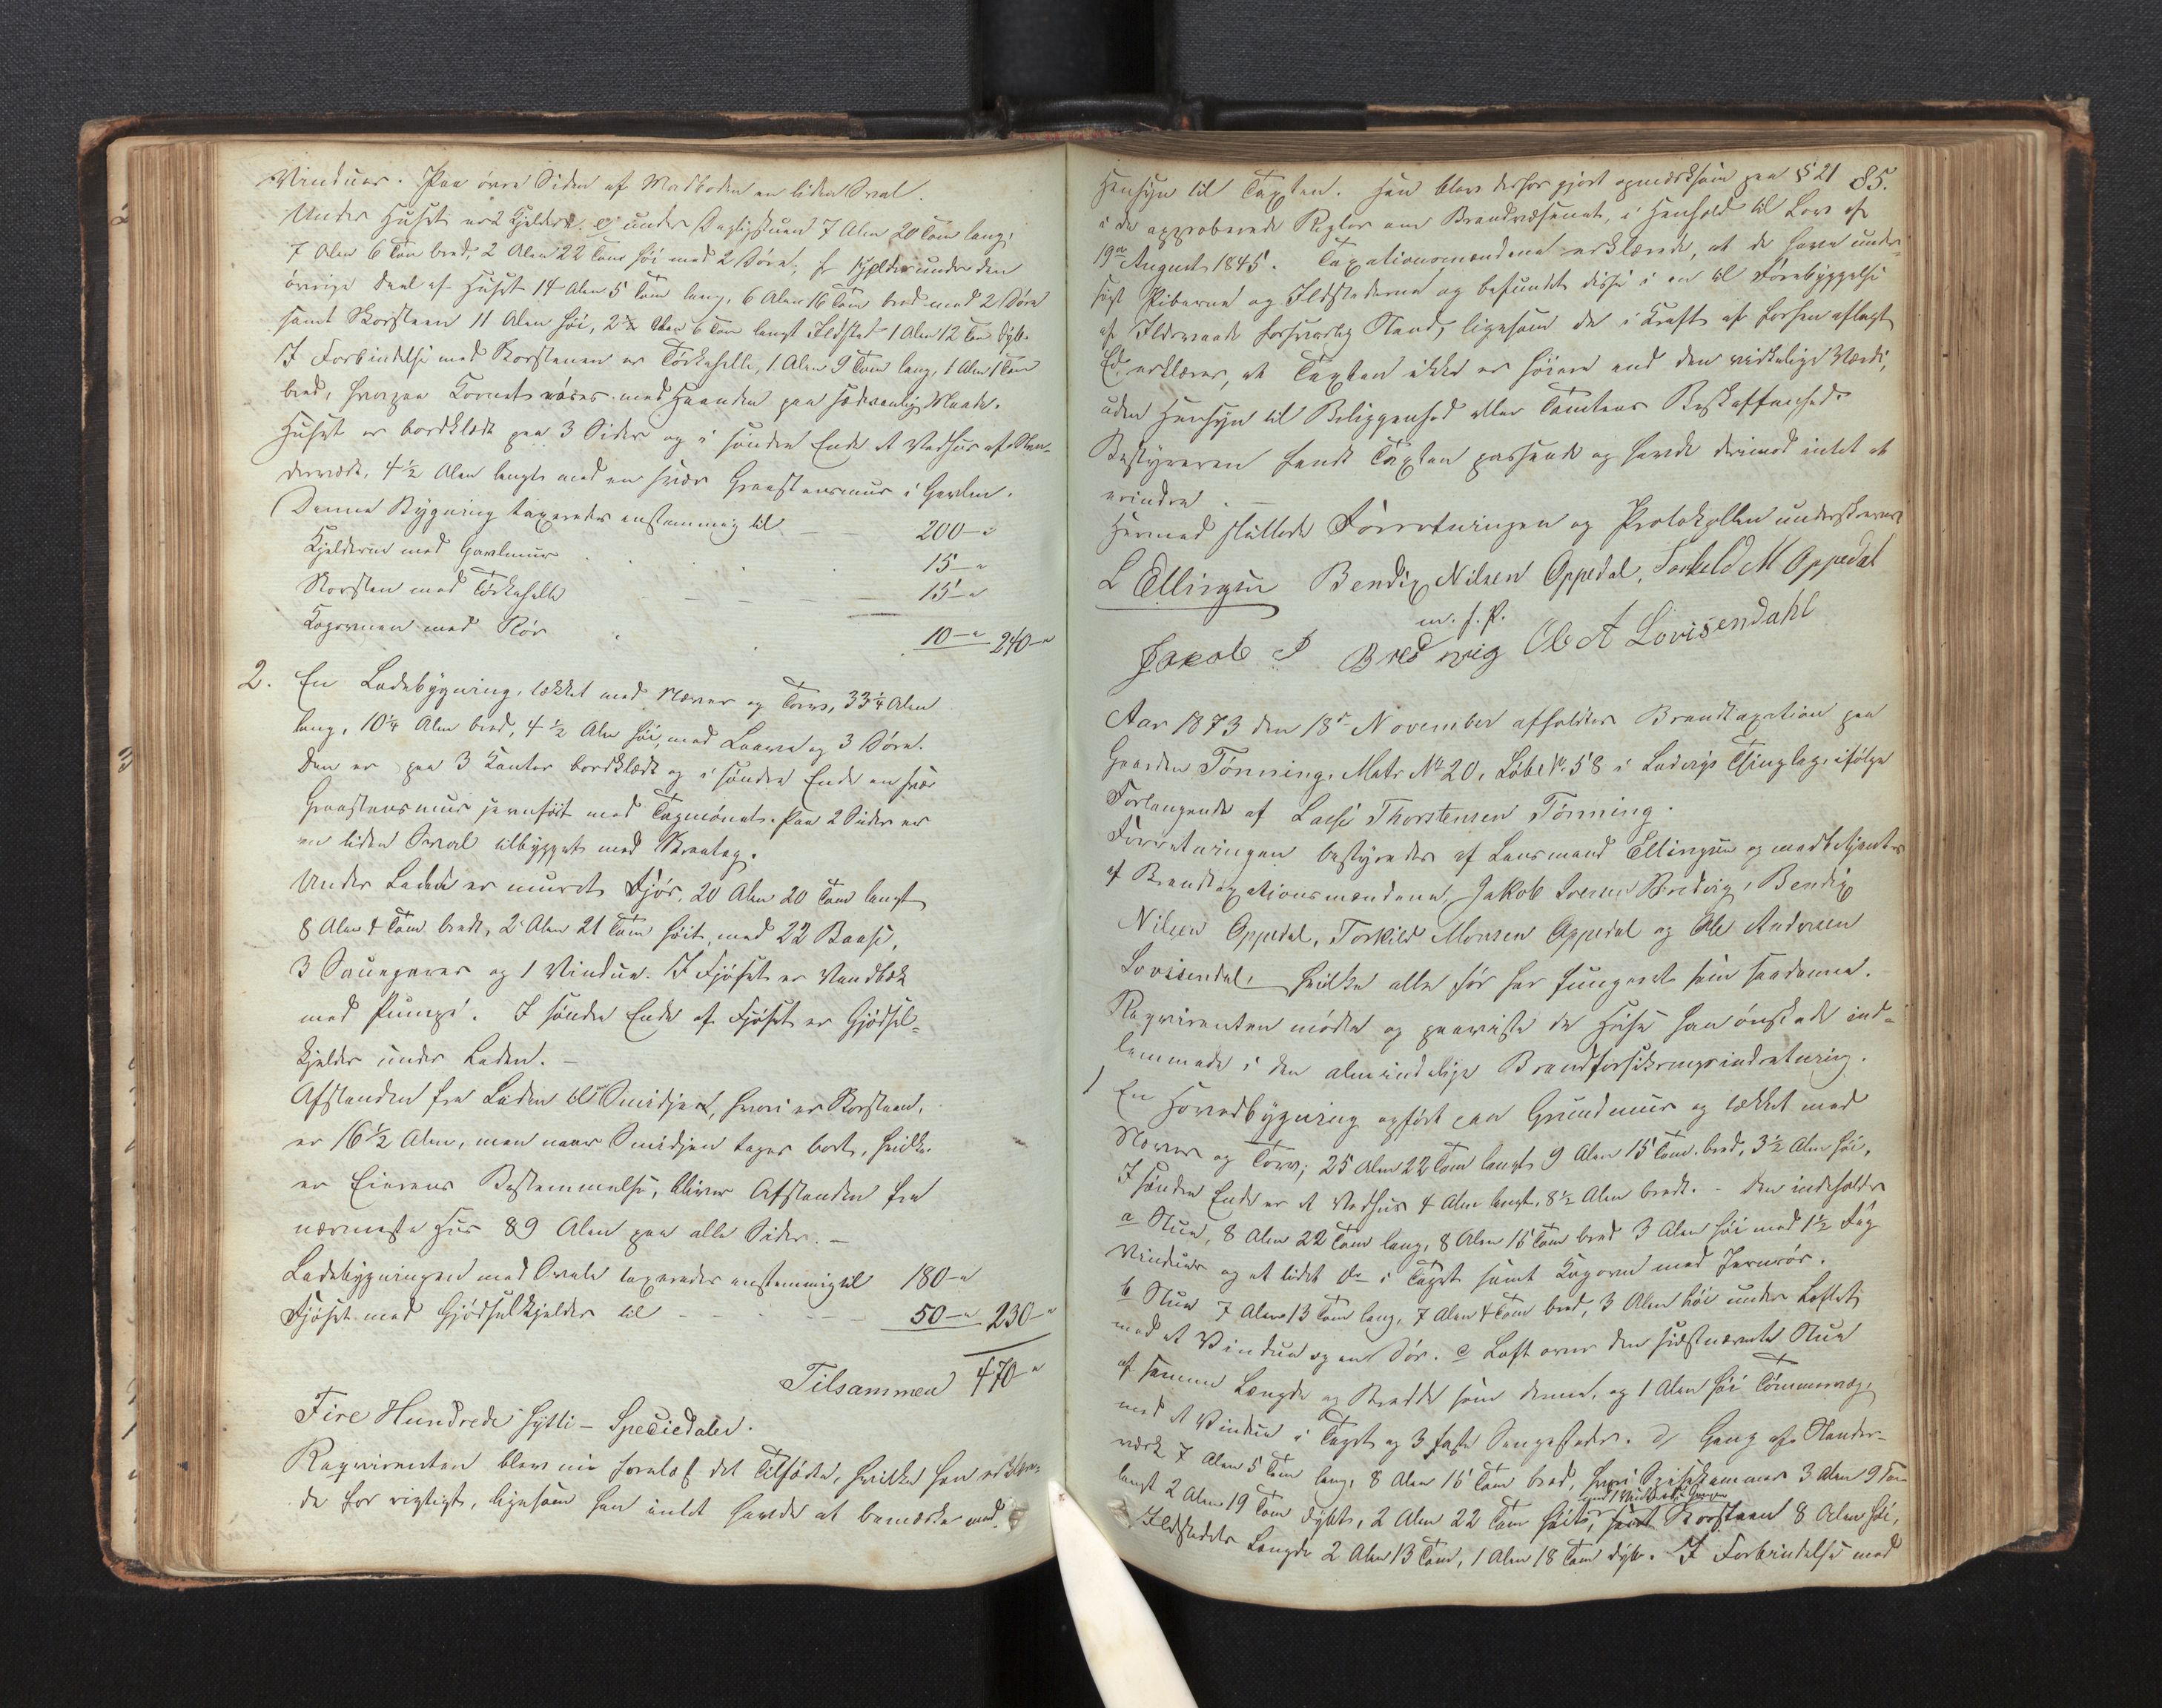 Vinduer. Paa øvre Siden af Madboden en liden Sval.
Under Huset er 2 Kjeldere. e, under Dagligstuen 7 Alen 20 Tom lang,
7 Alen 6 Tom bred, 2 Alen 22 Tom høi med 2 Døre, f, Kjelder under den
øvrige Deel af Huset 14 Alen 5 Tom lang, 6 Alen 16 Tom bred med 2 Døre
samt Skorsteen 11 Alen høi, 2 Alen 6 Tom langt Ildsted 1 Alen 12 Tom dyb.
I Forbindelse med Skorstenen er Tørkehelle, 1 Alen 9 Tom lang, 1 Alen 1 Tom
bred, hvorpaa Kornet røres med Haanden paa sædvanlig Maade.
Huset er bordklædt paa 3 Sider og i søndre Ende et Vedhus af Sten-
derværk, 4½ Alen langt med en svær Graastensmur i Gavlen.
Denne Bygning taxeredes enstemmig til - - 200 - "
Kjelderen med Gavlmur . . . . 15 - "
Skorsten med Tørkehelle - - - - 15 - "
Kogovnen med Rør . . 10 - " 240 - "
2. En Ladebygning, tækket med Næver og Torv, 33¼ Alen
lang, 10¼ Alen bred, 4½ Alen høi, med Laave og 3 Døre.
Den er paa 3 Kanter bordklædt og i søndre Ende en svær
Graastensmur jevnhøit med Tagmønet. Paa 2 Sider er
en liden Sval tilbygget med Skraatag.
Under Laden er muret Fjøs, 20 Alen 20 Tom langt
8 Alen 4 Tom bredt, 2 Alen 21 Tom høit, med 22 Baase,
3 Sauegarer og 1 Vindue. I Fjøset er Vandbæk
med Pumpe. I søndre Ende af Fjøset er Gjødsel-
kjelder under Laden. -
Afstanden fra Laden til en Smidje, hvori er Skorsteen,
er 16½ Alen, men naar Smidjen tages bort, hvilket
er Eierens Bestemmelse, bliver Afstanden fra
nærmeste Hus 89 Alen paa alle Sider. -
Ladebygningen med Svale taxeredes enstemmig til 180 - "
Fjøset med Gjødselkjelder til - - - - - 50 - " 230 - "
Tilsammen 470 "
Fire Hundrede sytti - Speciedaler.
Reqvirenten blev nu forelæst det Tilførte, hvilket han erklære-
de for rigtigt, ligesom han intet havde at bemærke med
85.
Hensyn til Taxten. Han blev derhos gjort opmærksom paa § 21
i de approberede Regler om Brandvæsenet, i Henhold til Lov af
19de August 1845. Taxationsmændene erklærede, at de have under-
søgt Piberne og Ildstederne og befundet disse i en til Forebyggelse
af Ildsvaade forsvarlig Stand, ligesom de i Kraft af forhen aflagt
Ed erklærer, at Taxten ikke er høiere end den virkelige Værdi,
uden Hensyn til Beliggenhed eller Tomtens Beskaffenhed.
Bestyreren fandt Taxten passende og havde derimod intet at
erindre. -
Hermed sluttede Forretningen og Protokollen underskreves
L Ellingsen Bendix Nilsen Oppedal, Torkeld M Oppedal
m. f. P.
Jakob I Bredvig Ole A Lovisendahl
Aar 1873 den 18de November afholdtes Brandtaxation paa
Gaarden Tønning, Matr No 20, Løbe No 58 i Ladvigs Thinglag, ifølge
Forlangende af Lasse Thorstensen Tønning.
Forretningen bestyredes af Lensmand Ellingsen og medbetjentes
af Brandtaxationsmændene, Jakob Iversen Bredvig, Bendix
Nilsen Oppedal, Torkild Monsen Oppedal og Ole Andersen
Lovisendal, hvilke alle før har fungeret som saadanne.
Reqvirenten mødte og paaviste de Huse han ønskede ind-
lemmede i den almindelige Brandforsikringsindretning.
1 En Hovedbygning opført paa Grundmur og tækket med
Næver og Torv; 25 Alen 22 Tom langt, 9 Alen 15 Tom. bred, 3½ Alen høi,
I søndre Ende er et Vedhus 4 Alen langt, 8½ Alen bredt. - Den indeholder
a Stue, 8 Alen 22 Tom lang, 8 Alen 15 Tom bred 3 Alen høi med 1½ Fag
Vinduer og et lidet do i Taget samt Kogovn med Jernrør.
b Stue 7 Alen 13 Tom lang, 7 Alen 4 Tom bred, 3 Alen høi under Loftet,
med et Vindue og en Dør. c Loft over den sidstnævnte Stue
af samme Længde og Bredde som denne, og 1 Alen høi Tømmervæg,
med et Vindue i Taget og 3 faste Sengesteder. d, Gang af Stender-
værk 7 Alen 5 Tom lang, 8 Alen 15 Tom bred, hvori Spisekammer 3 Alen 9 Tom
langt 2 Alen 19 Tom dybt, 2 Alen 22 Tom høit, samt Skorsteen 8 Alen høi,
med 1 Vindue
Ildstedets Længde 2 Alen 13 Tom, 1 Alen 18 Tom dyb. I Forbindelse med